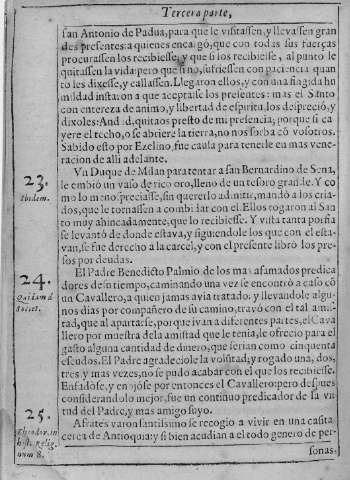 Tercera parte,
san Antonio de Padua, para que le visitassen, y llevassen gran
des presentes: a quienes encargó, que con todas sus fuerças
procurassen los recibiesse, y que si los recibiesse, al punto le
quitassen la vida: pero que si no, sufriessen con paciencia quan
to les dixesse, y callassen. Llegaron ellos, y con una fingida hu
mildad instaron a que aceptasse los presentes: mas el Santo
con entereza de animo, y libertad de espiritu, los despreció, y
dixoles: Andad, quitaos presto de mi presencia, porque si ca-
yere el techo, o se abriere la tierra, no nos sorba có vosotros.
Sabido esto por Ezelino, fue causa para tenerle en mas vene-
racion de alli adelante.
23.
Ibidem.
Vn Duque de Milan para tentar a san Bernardino de Sena,
le embiò un vaso de rico oro, lleno de un tesoro grande. Y co
mo lo menospreciasse, sin quererlo admitir, mandó a los cria-
dos, que le tornassen a combidar con el. Ellos rogaron al San
to muy ahincadamente, que lo recibiesse. Y vista tanta porfia
se levantó de donde estava, y siguiendole los que con el esta-
van, se fue derecho a la carcel, y con el presente librò los pre-
sos por deudas.
24.
El Padre Benedicto Palmio, de los mas afamados predica
dores de su tiempo, caminando una vez se encontrò a caso có
un Cavallero, a quien jamas avia tratado: y llevandole algu-
nos dias por compañero de su camino, travó con el tal amis-
tad, que al apartarse, porque ivan a diferentes partes, el Cava
llero por muestra de la amistad que le tenia, le ofreció para el
gasto alguna cantidad de dinero, que serian como cinquenta
escudos. El Padre agradeciole la voluntad, y rogado una, dos,
tres, y mas vezes, no se pudo acabar con el que los recibiesse.
Enfadóse, y enojóse por entonces el Cavallero: pero despues
considerandolo mejor, fue un continuo predicador de la vir
tud del Padre, y mas amigo suyo.
25.
Theodor. in
hist. Relig.
num 8.
Afrates varon santissimo se recogio a vivir en una casita
cerca de Antioquia: y si bien acudian a el todo genero de per-
sonas.